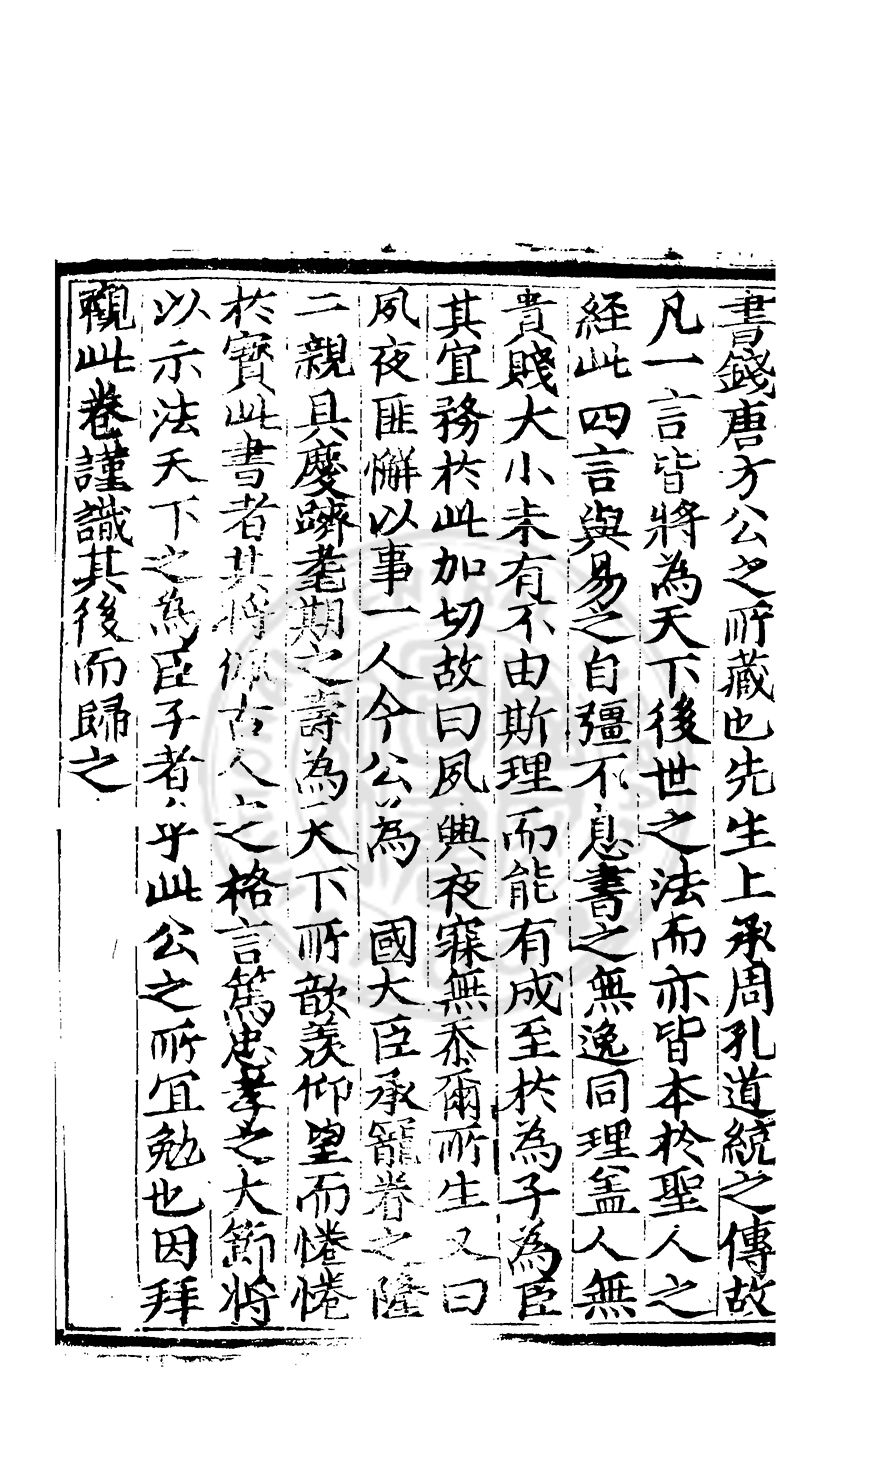 書錢唐方公之所藏也先生上承周孔道統之傳故
凡一言皆將為天下後世之法而亦皆本於聖人之
經此四言與易之自彊不息書之無逸同理盖人無
貴賤大小未有不由斯理而能有成至於為子為臣
其宜務於此加切故曰夙興夜寐無忝爾所生又曰
夙夜匪懈以事一人今公為　國大臣承寵眷之隆
二親具慶躋耄期之壽為天下所歆羨仰望而惓惓
於寳此書者其將佩古人之格言篤忠孝之大節將
以示法天下之為臣子者乎此公之所宜勉也因拜
觀此卷謹識其後而歸之